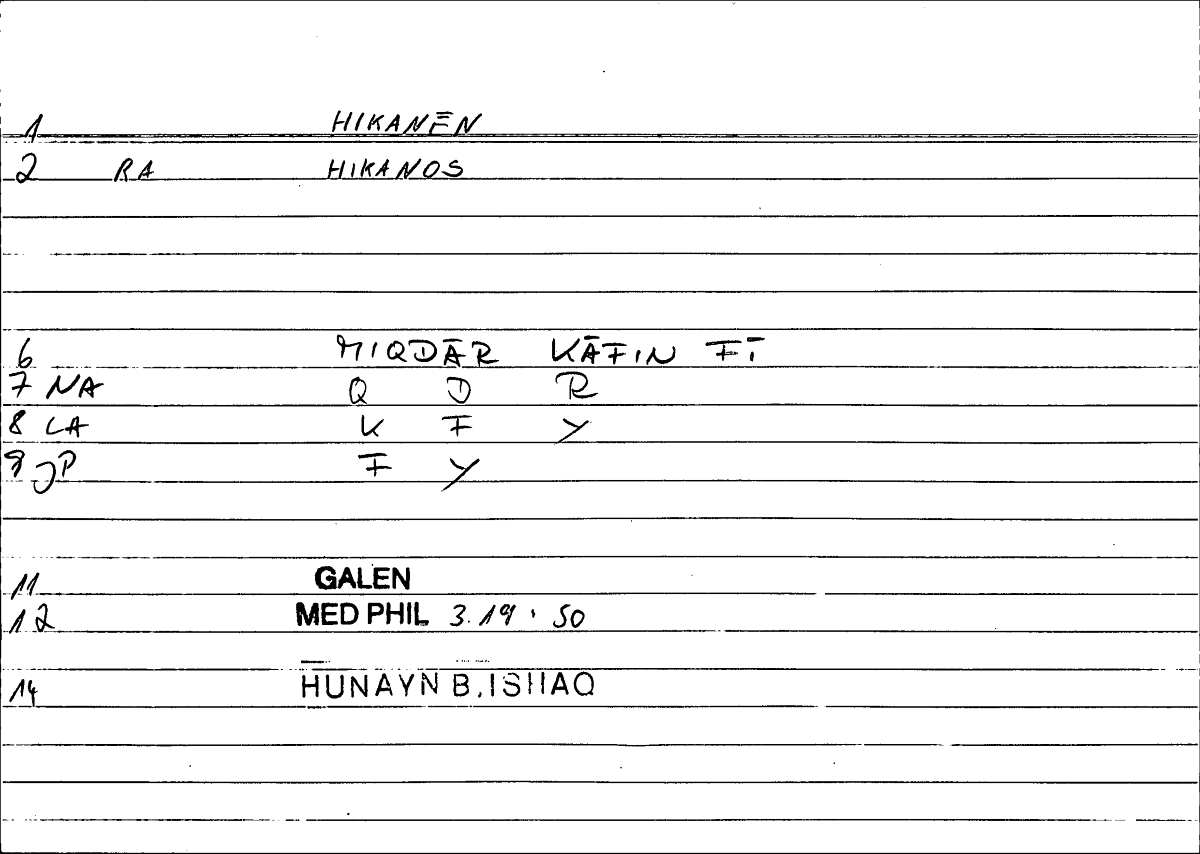 1 HIKANĒN
2 RA HIKANOS
6 MIQDĀR KĀFIN FĪ
7 NA Q D R
8 LA K F Y
9 JP F Y
11 GALEN
12 MED PHIL 3.19 · 50
14 HUNAYN B. ISHAQ